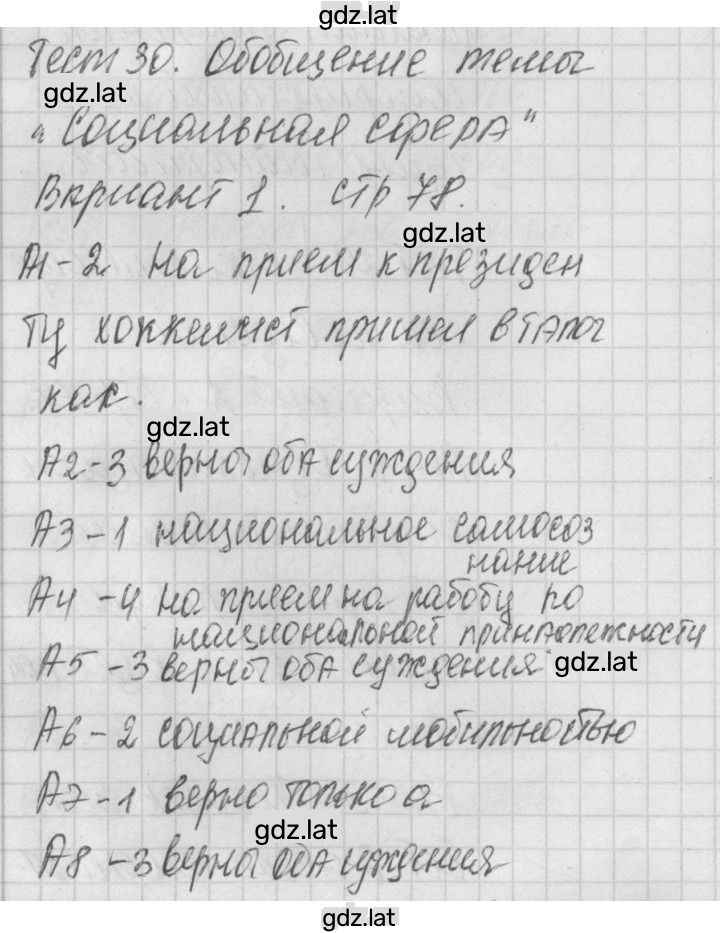 gdz.lat
Тест 30. Обобщение темы
gdz.lat
"Социальная сфера"
Вариант 1. стр 78.
gdz.lat
А1-2 на прием к президен
ту хоккеист пришел в галс
как.
gdz.lat
А2-3 верны оба суждения
А3-1 национальное самосоз
нание
А4-4 на прием на работу по
национальной принадлежности
А5-3 верны оба суждения
gdz.lat
А6-2 социальной мобильностью
А7-1 верно только а
gdz.lat
А8-3 верны оба суждения
gdz.lat